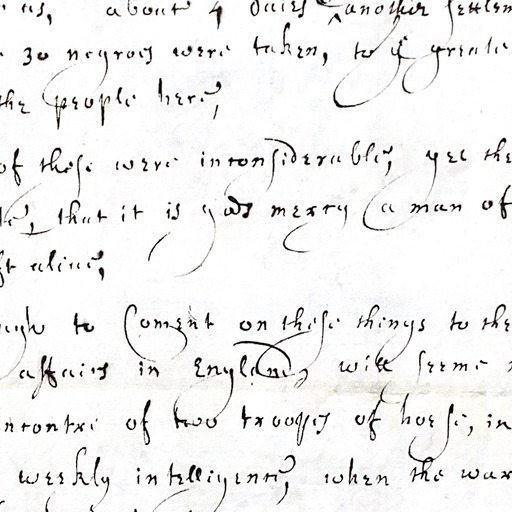 us, about 4 daies another settlem
e 30 negroes were taken, to ye greate
the people here,
of these were inconsiderable, yet the
that it is gods mercy a man of
ft alive,
to Coment on these things to the
affaires in England, will seeme
ncontre of two troopes of horse, in
weekly intelligence, when the war